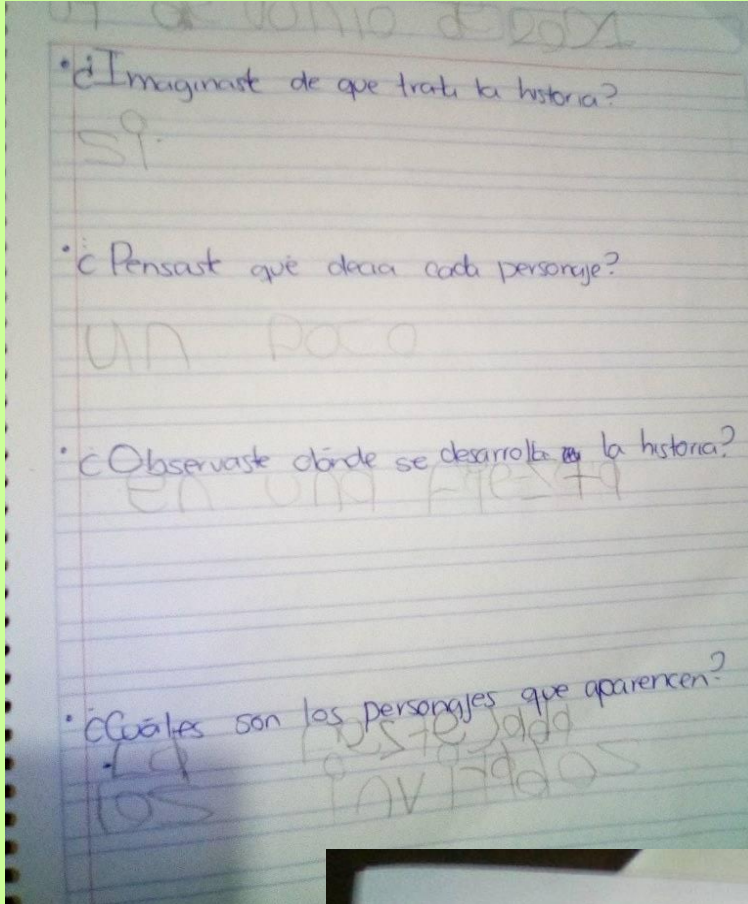 de Junio de 2021
•¿Imaginaste de que trata la historia?
si.
•¿Pensaste qué decia cada personaje?
un poco
•¿Observaste dónde se desarrolla la historia?
en una fiesta
•¿Cuáles son los personajes que aparencen?
•La festejada
los invitados